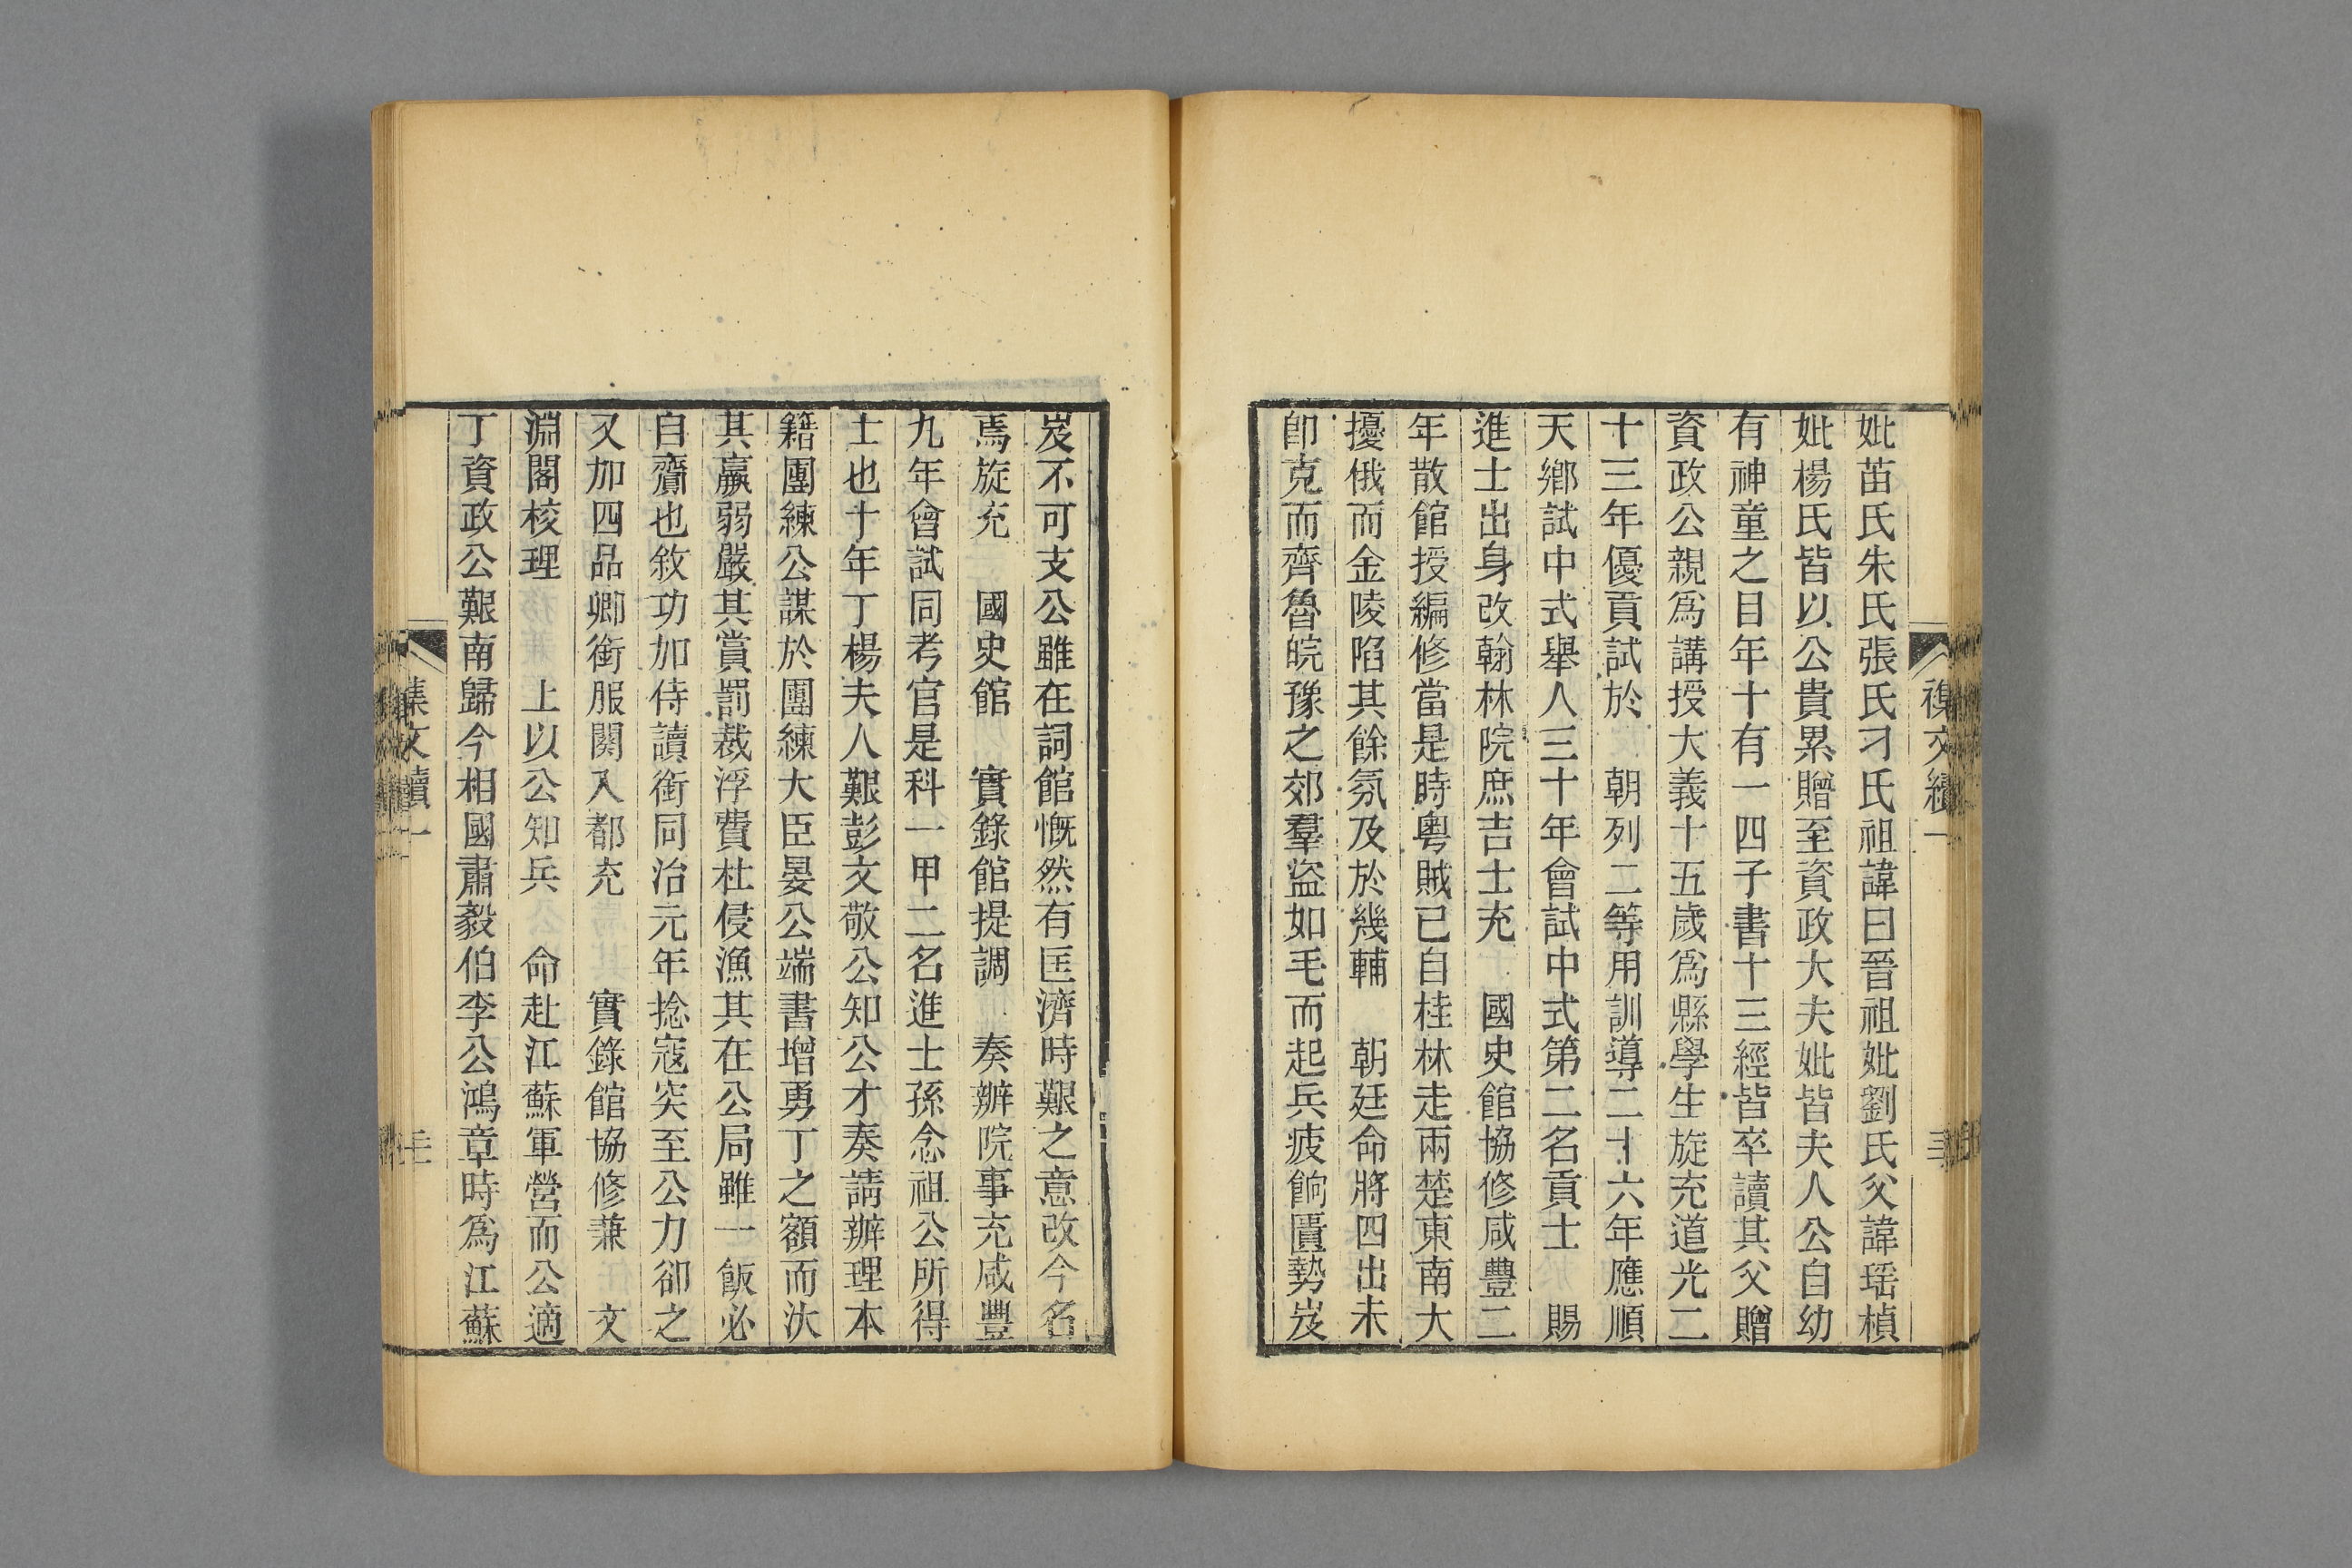 妣苗氏朱氏張氏刁氏祖諱曰晉祖妣劉氏父諱瑤楨
妣楊氏皆以公貴累贈至資政大夫妣皆夫人公自幼
有神童之目年十有一四子書十三經皆卒讀其父贈
資政公親爲講授大義十五歲爲縣學生旋充道光二
十三年優貢試於　朝列二等用訓導二十六年應順
天鄉試中式舉人三十年會試中式第二名貢士　賜
進士出身改翰林院庶吉士充　國史館協修咸豐二
年散館授編修當是時粵賊已自桂林走兩楚東南大
擾俄而金陵陷其餘氛及於幾輔　朝廷命將四出未
卽克而齊魯皖豫之郊羣盜如毛而起兵疲餉匱勢岌
岌不可支公雖在詞館慨然有匡濟時艱之意改今名
焉旋充　國史館　實錄館提調　奏辦院事充咸豐
九年會試同考官是科一甲二名進士孫念祖公所得
士也十年丁楊夫人艱彭文敬公知公才奏請辦理本
籍團練公謀於團練大臣晏公端書增勇丁之額而汰
其羸弱嚴其賞罰裁浮費杜侵漁其在公局雖一飯必
自齎也敘功加侍讀銜同治元年捻寇突至公力卻之
又加四品卿銜服闋入都充　實錄館協修兼　文
淵閣校理　上以公知兵　命赴江蘇軍營而公適
丁資政公艱南歸今相國肅毅伯李公鴻章時爲江蘇
集文續一